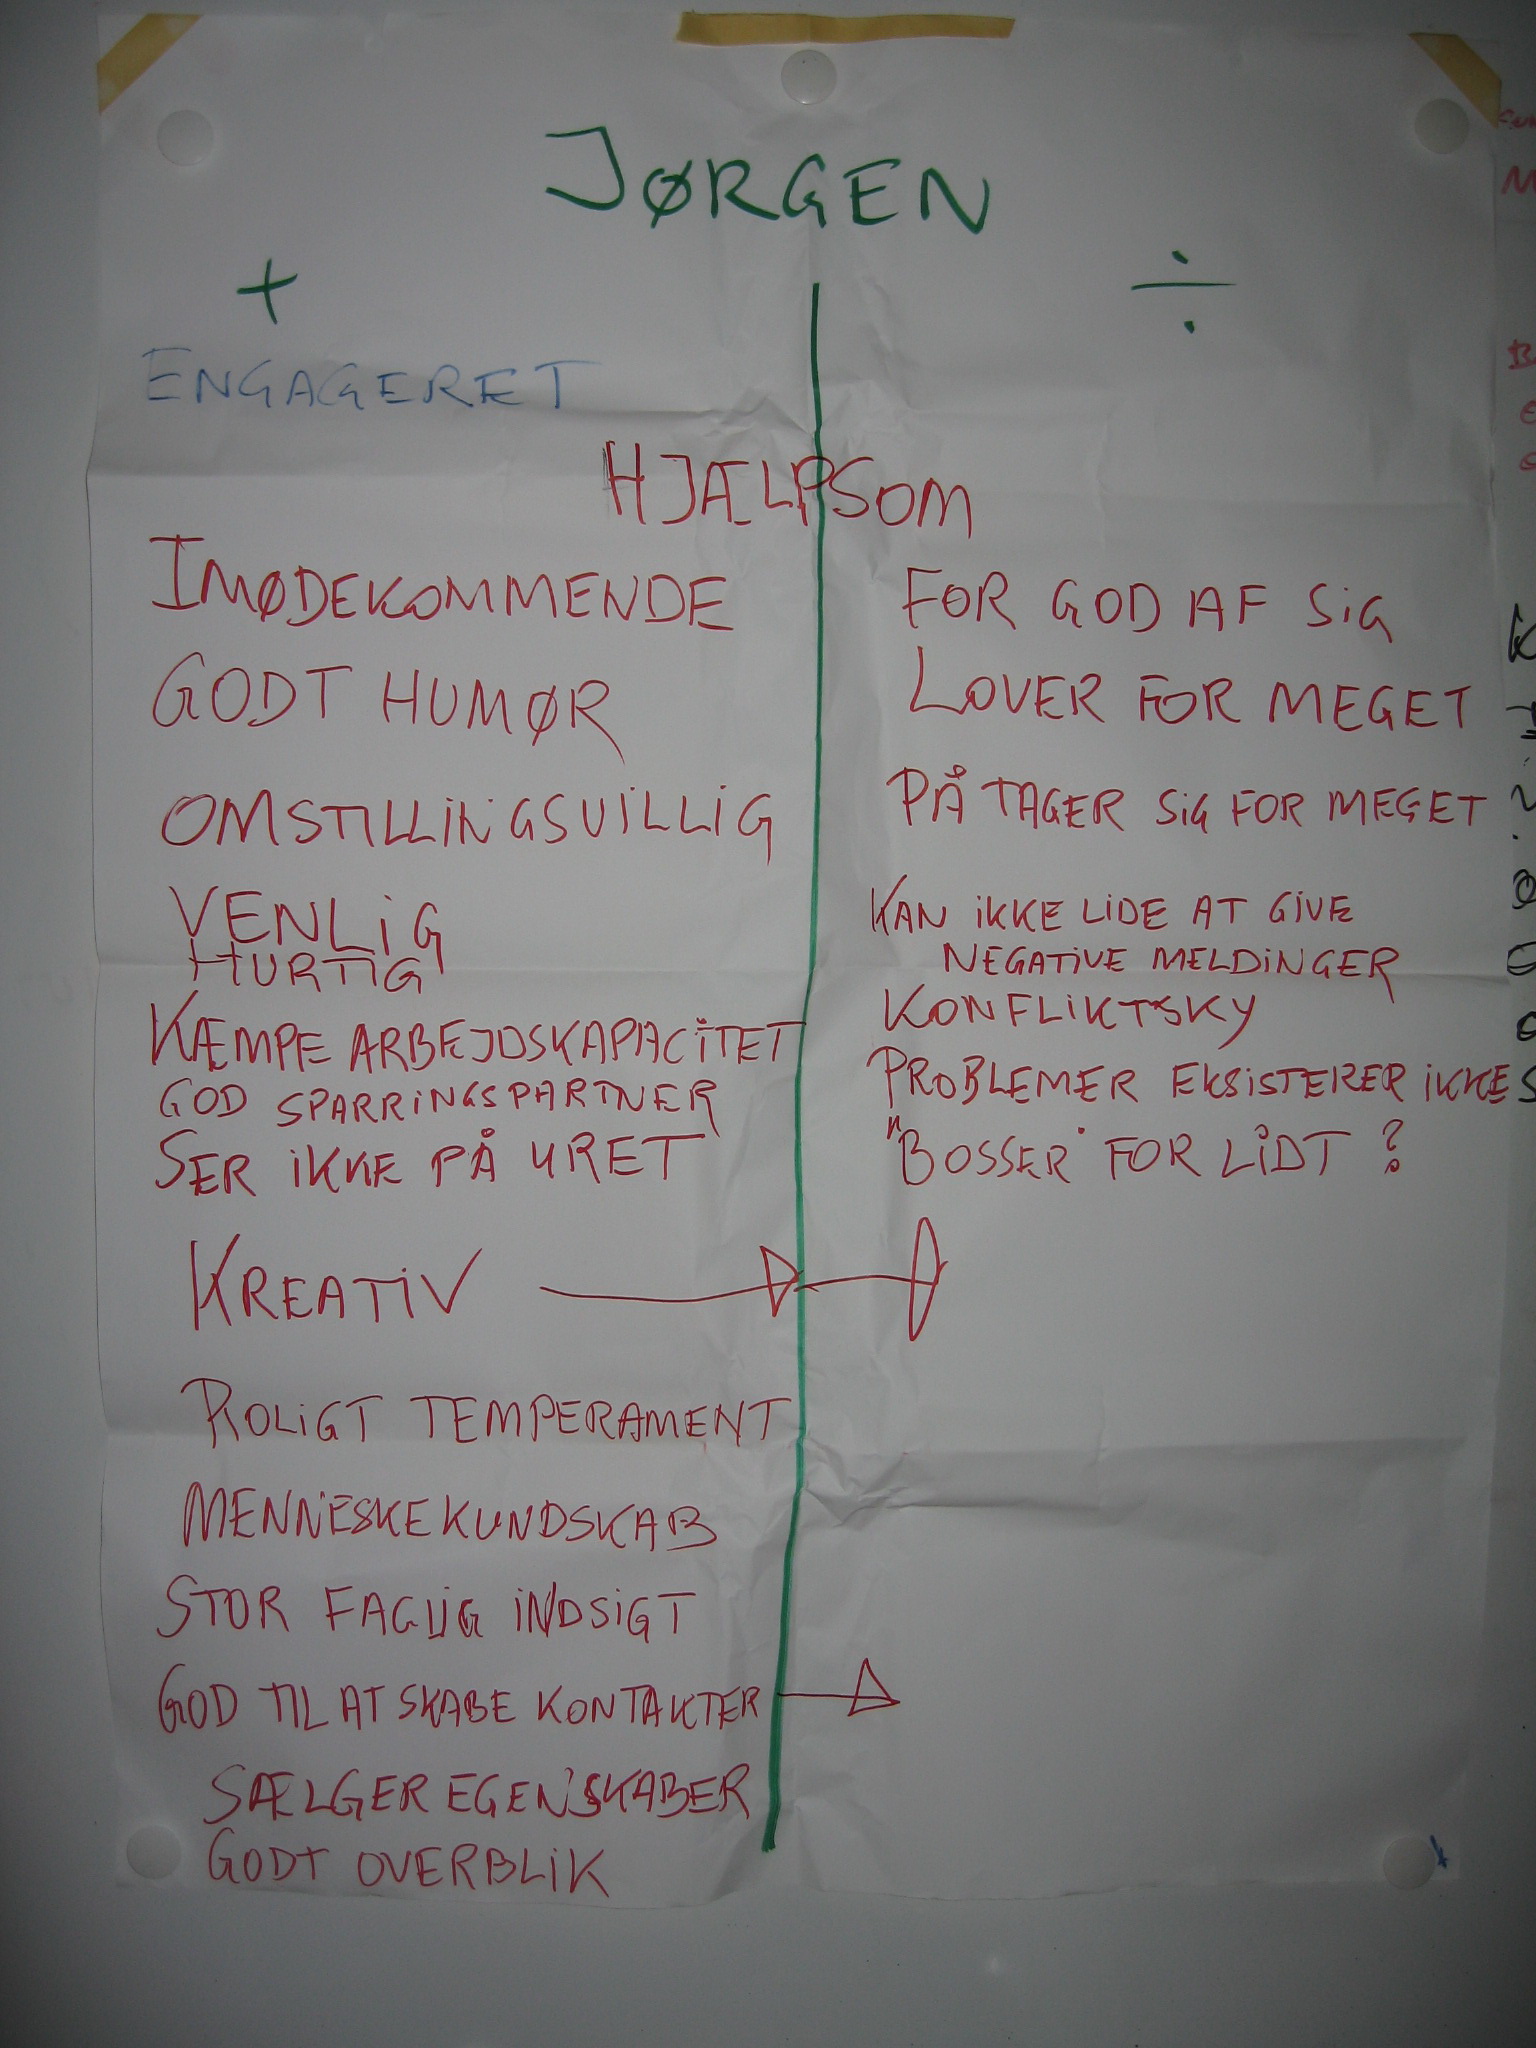 JØRGEN
+ ÷
ENGAGERET
HJÆLPSOM
IMØDEKOMMENDE
GODT HUMØR
OMSTILLINGSVILLIG
VENLIG
HURTIG
KÆMPE ARBEJDSKAPACITET
GOD SPARRINGSPARTNER
SER IKKE PÅ URET
KREATIV
ROLIGT TEMPERAMENT
MENNESKEKUNDSKAB
STOR FAGLIG INDSIGT
GOD TIL AT SKABE KONTAKTER
SÆLGER EGENSKABER
GODT OVERBLIK
FOR GOD AF SIG
LOVER FOR MEGET
PÅ TAGER SIG FOR MEGET
KAN IKKE LIDE AT GIVE
NEGATIVE MELDINGER
KONFLIKTSKY
PROBLEMER EKSISTERER IKKE
"BOSSER" FOR LIDT ?